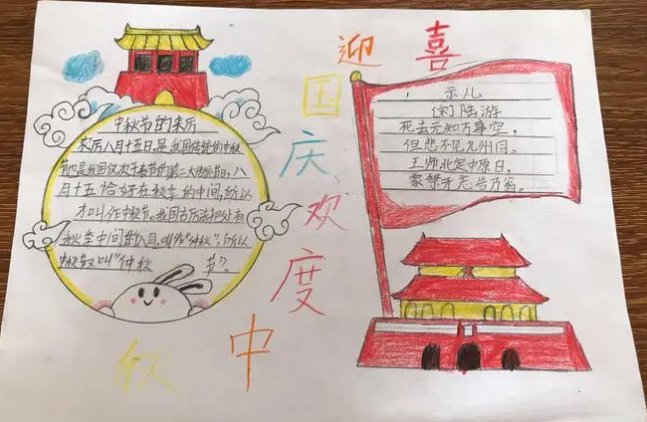 喜迎国庆欢度中秋
中秋节的来历
农历八月十五日,是我国传统的中秋
节也是我国仅次于春节的第二大传统节日,八
月十五恰好在秋季的中间,所以
才叫作中秋节。我国古历法把处在
秋季中间的八月,叫作"仲秋",所以
中秋又叫"仲秋节"。
示儿
(宋)陆游
死去元知万事空,
但悲不见九州同。
王师北定中原日,
家祭无忘告乃翁。